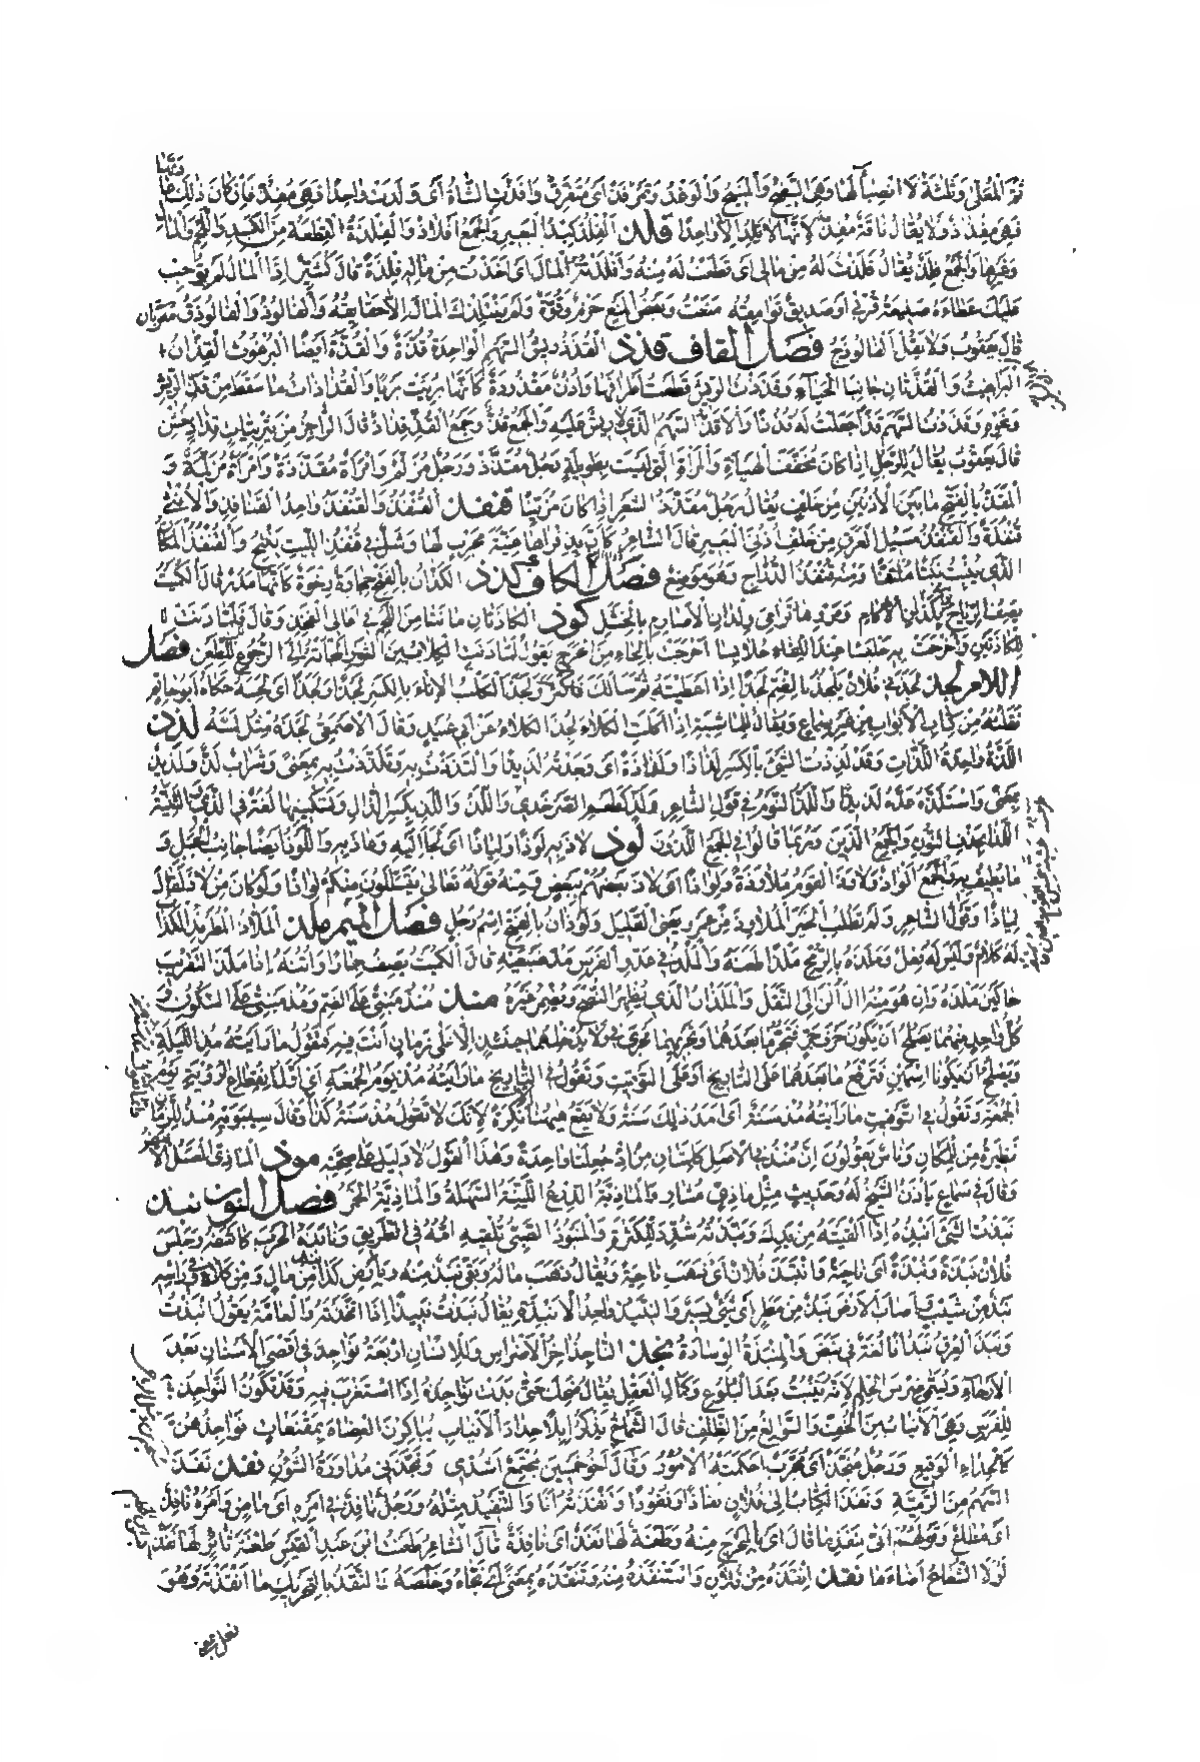 ثم المعلى وثلثة لا انصباء لها وهي السفيح والمنيح والوغد وتمر فذ اى متفرق وافذت الشاة اى ولدت واحدا فهي مفذ فان كان ذلك
فهي مفذاذ ولا يقال ناقة مفذ لانها لا تلد الا واحدا فلذ الفلذ كبد البعير والجمع افلاذ والفلذة القطعة من الكبد واللحم والمال
وغيرها والجمع فلذ يقال فلذت له من مالى اى قطعت له منه وافلذته المال اى اخذت من ماله فلذة قال كثير اذا المال لم يوجب
عليك عطاءه صنيعة قربى او صديق توامقه منعت وبعض المنع حزم وقوة ولم يفتلذك المال الا حقائقه والفالوذ والفالوذق معربان
قال يعقوب ولا تقل الفالوذج فصل القاف قذذ القذذ ريش السهم الواحدة قذة والقذة ايضا البرغوث القذان
البراغيث والقذتان جانبا الحياء وقذذت الريش قطعت اطرافها واذن مقذوذة كانها بريت بريا والقذاذات ما سقط من قذ الريش
ونحوه وقذذت السهم قذا جعلت له قذذا والاقذ السهم الذي لا ريش عليه والجمع قذ وجمع القذ قذاذ قال الراجز من يثربيات قذاذ خشن
قال يعقوب يقال للرجل اذا كان مخفف الهيأة والمراة التي ليست بطويلة رجل مقذذ ورجل مزلم وامراة مقذذة وامراة مزلمة و
المقذ بالفتح ما بين الاذنين من خلف يقال رجل مقذذ الشعر اذا كان مزينا قنفذ القنفذ والقنفذ واحد القنافذ والانثى
قنفذة والقنفذ مسيل العرق من خلف اذنى البعير قال الشاعر كان بذفراها عنية مجرب لها وشل في قنفذ الليت ينتح والقنفذ المكان
الذي ينبت نبتا ملتفا ومنه قنفذ الدراج وهو موضع فصل الكاف كذذ الكذان بالفتح حجارة رخوة كانها مدر قال الكميت
يصف الرياح ترامى بكذان الاكام ومروها ترامي ولدان الاصارم بالخشل كوذ الكاذتان ما نتا من اللحم في اعالى الفخذ وقال فلما دنت
للكاذتين واحرجت به حلبسا عند اللقاء حلابسا احرجت بالحاء من الحرج يقول لما دنت الكلاب من الثور الجاته الى الرجوع للطعن فصل
اللام لجذ لجذنى فلان يلجذ بالضم لجذا اذا اعطيته ثم سالك فاكثر ولجذ الكلب الاناء بالكسر لجذا ولجذا اى لحسه حكاه ابو حاتم
نقلته من كتاب الابواب من غير سماع ويقال للماشية اذا اكلت الكلاء لجذ الكلاء عن ابي عبيد وقال الاصمعي لجذه مثل لسه لذذ
اللذة واحدة اللذات وقد لذذت الشئ بالكسر لذاذا ولذاذة اى وجدته لذيذا والتذذت به وتلذذت به بمعنى وشراب لذ ولذيذ
بمعنى واستلذه عده لذيذا واللذ النوم في قول الشاعر ولذ كطعم الصرخدى واللذ واللذ بكسر الذال وتسكينها لغة في الذي والتثنية
اللذا بحذف النون والجمع الذين وربما قالوا في الجمع اللذون لوذ لاذ به لوذا ولياذا اى لجا اليه وعاذ به واللوذ ايضا جانب الجبل و
ما يطيف به والجمع الواذ ولاوذ القوم ملاوذة ولواذا اى لاذ بعضهم ببعض ومنه قوله تعالى يتسللون منكم لواذا ولو كان من لاذ لقال
لياذا وقول الشاعر ولم تطلب الخير الملاوذ من عمرو يعنى القليل ولوذان بالفتح اسم رجل فصل الميم ملذ الملاذ المطرمذ الكذاب
له كلام وليس له فعل وملذه بالرمح ملذا طعنه والملذ في عدو الفرس مد ضبعيه قال الكميت يصف حمارا واتنه اذا ملذ التقريب
حاكين ملذه وان هو منه ال الن الى النقل والملذان الذي يظهر النصح ويضمر غيره منذ منذ مبني على الضم ومذ مبني على السكون و
كل واحد منهما يصلح ان يكون حرف جر فتجر ما بعدهما وتجريهما مجرى في ولا تدخلهما حينئذ الا على زمان انت فيه فتقول ما رايته مذ الليلة
ويصلح ان يكونا اسمين فترفع ما بعدهما على التاريخ او على التوقيت وتقول في التاريخ ما رايته مذ يوم الجمعة اي اول انقطاع الرؤية يوم
الجمعة وتقول في التوقيت ما رايته مذ سنة اى امد ذلك سنة ولا يقع ههنا الا نكرة لانك لا تقول مذ سنة كذا وقال سيبويه منذ للزمان
نظيرة من للمكان وناس يقولون ان منذ في الاصل كلمتان من اذ جعلتا واحدة وهذا القول لا دليل على صحته موذ الماذي العسل الابيض
وقال في سماع ياذن الشيخ له وحديث مثل ماذي مشار والماذية الدرع اللينة السهلة والماذية الخمر فصل النون نبذ
نبذت الشئ انبذه اذا القيته من يدك ونبذته شدد للكثرة والمنبوذ الصبى تلقيه امه في الطريق ونابذه الحرب كاشفه وجلس
فلان نبذة ونبذة اى ناحية وانتبذ فلان اى ذهب ناحية ويقال ذهب ماله وبقى نبذ منه وبارض كذا نبذ من مال ومن كلاء وفي راسه
نبذ من شيب واصاب الارض نبذ من مطر اى شئ يسير والنبيذ واحد الانبذة يقال نبذت نبيذا اذا اتخذته والعامة يقول انبذت
ونبذ العرق نبذانا لغة في نبض والمنبذة الوسادة نجذ الناجذ اخر الاضراس وللانسان اربعة نواجذ في اقصى الاسنان بعد
الارحاء ويسمى ضرس الحلم لانه ينبت بعد البلوغ وكمال العقل يقال ضحك حتى بدت نواجذه اذا استغرب فيه وقد تكون النواجذ
للفرس وهي الانياب من الخف والسوالغ من الظلف قال الشماخ يذكر ابلا حداد الانياب يباكرن العضاه بمقنعات نواجذهن
كالحداء الوقيع ورجل منجذ اى مجرب احكمته الامور وقال اخو خمسين مجتمع اشدى ونجذنى مداورة الشؤن نفذ نفذ
السهم من الرمية ونفذ الكتاب الى فلان نفاذا ونفوذا وانفذته انا والتنفيذ مثله ورجل نافذ في امره اى ماض وامره نافذ
اى مطاع وقولهم اتى بنفذ ما قال اى بالمخرج منه وطعنة لها نفذ اى نافذة قال الشاعر طعنت ابن عبد القيس طعنة ثائر لها نفذ
لولا الشعاع اضاءها نقذ انقذه من فلان واستنقذه منه وتنقذه بمعنى اى نجاه وخلصه والنقذ بالتحريك ما انقذته وهو